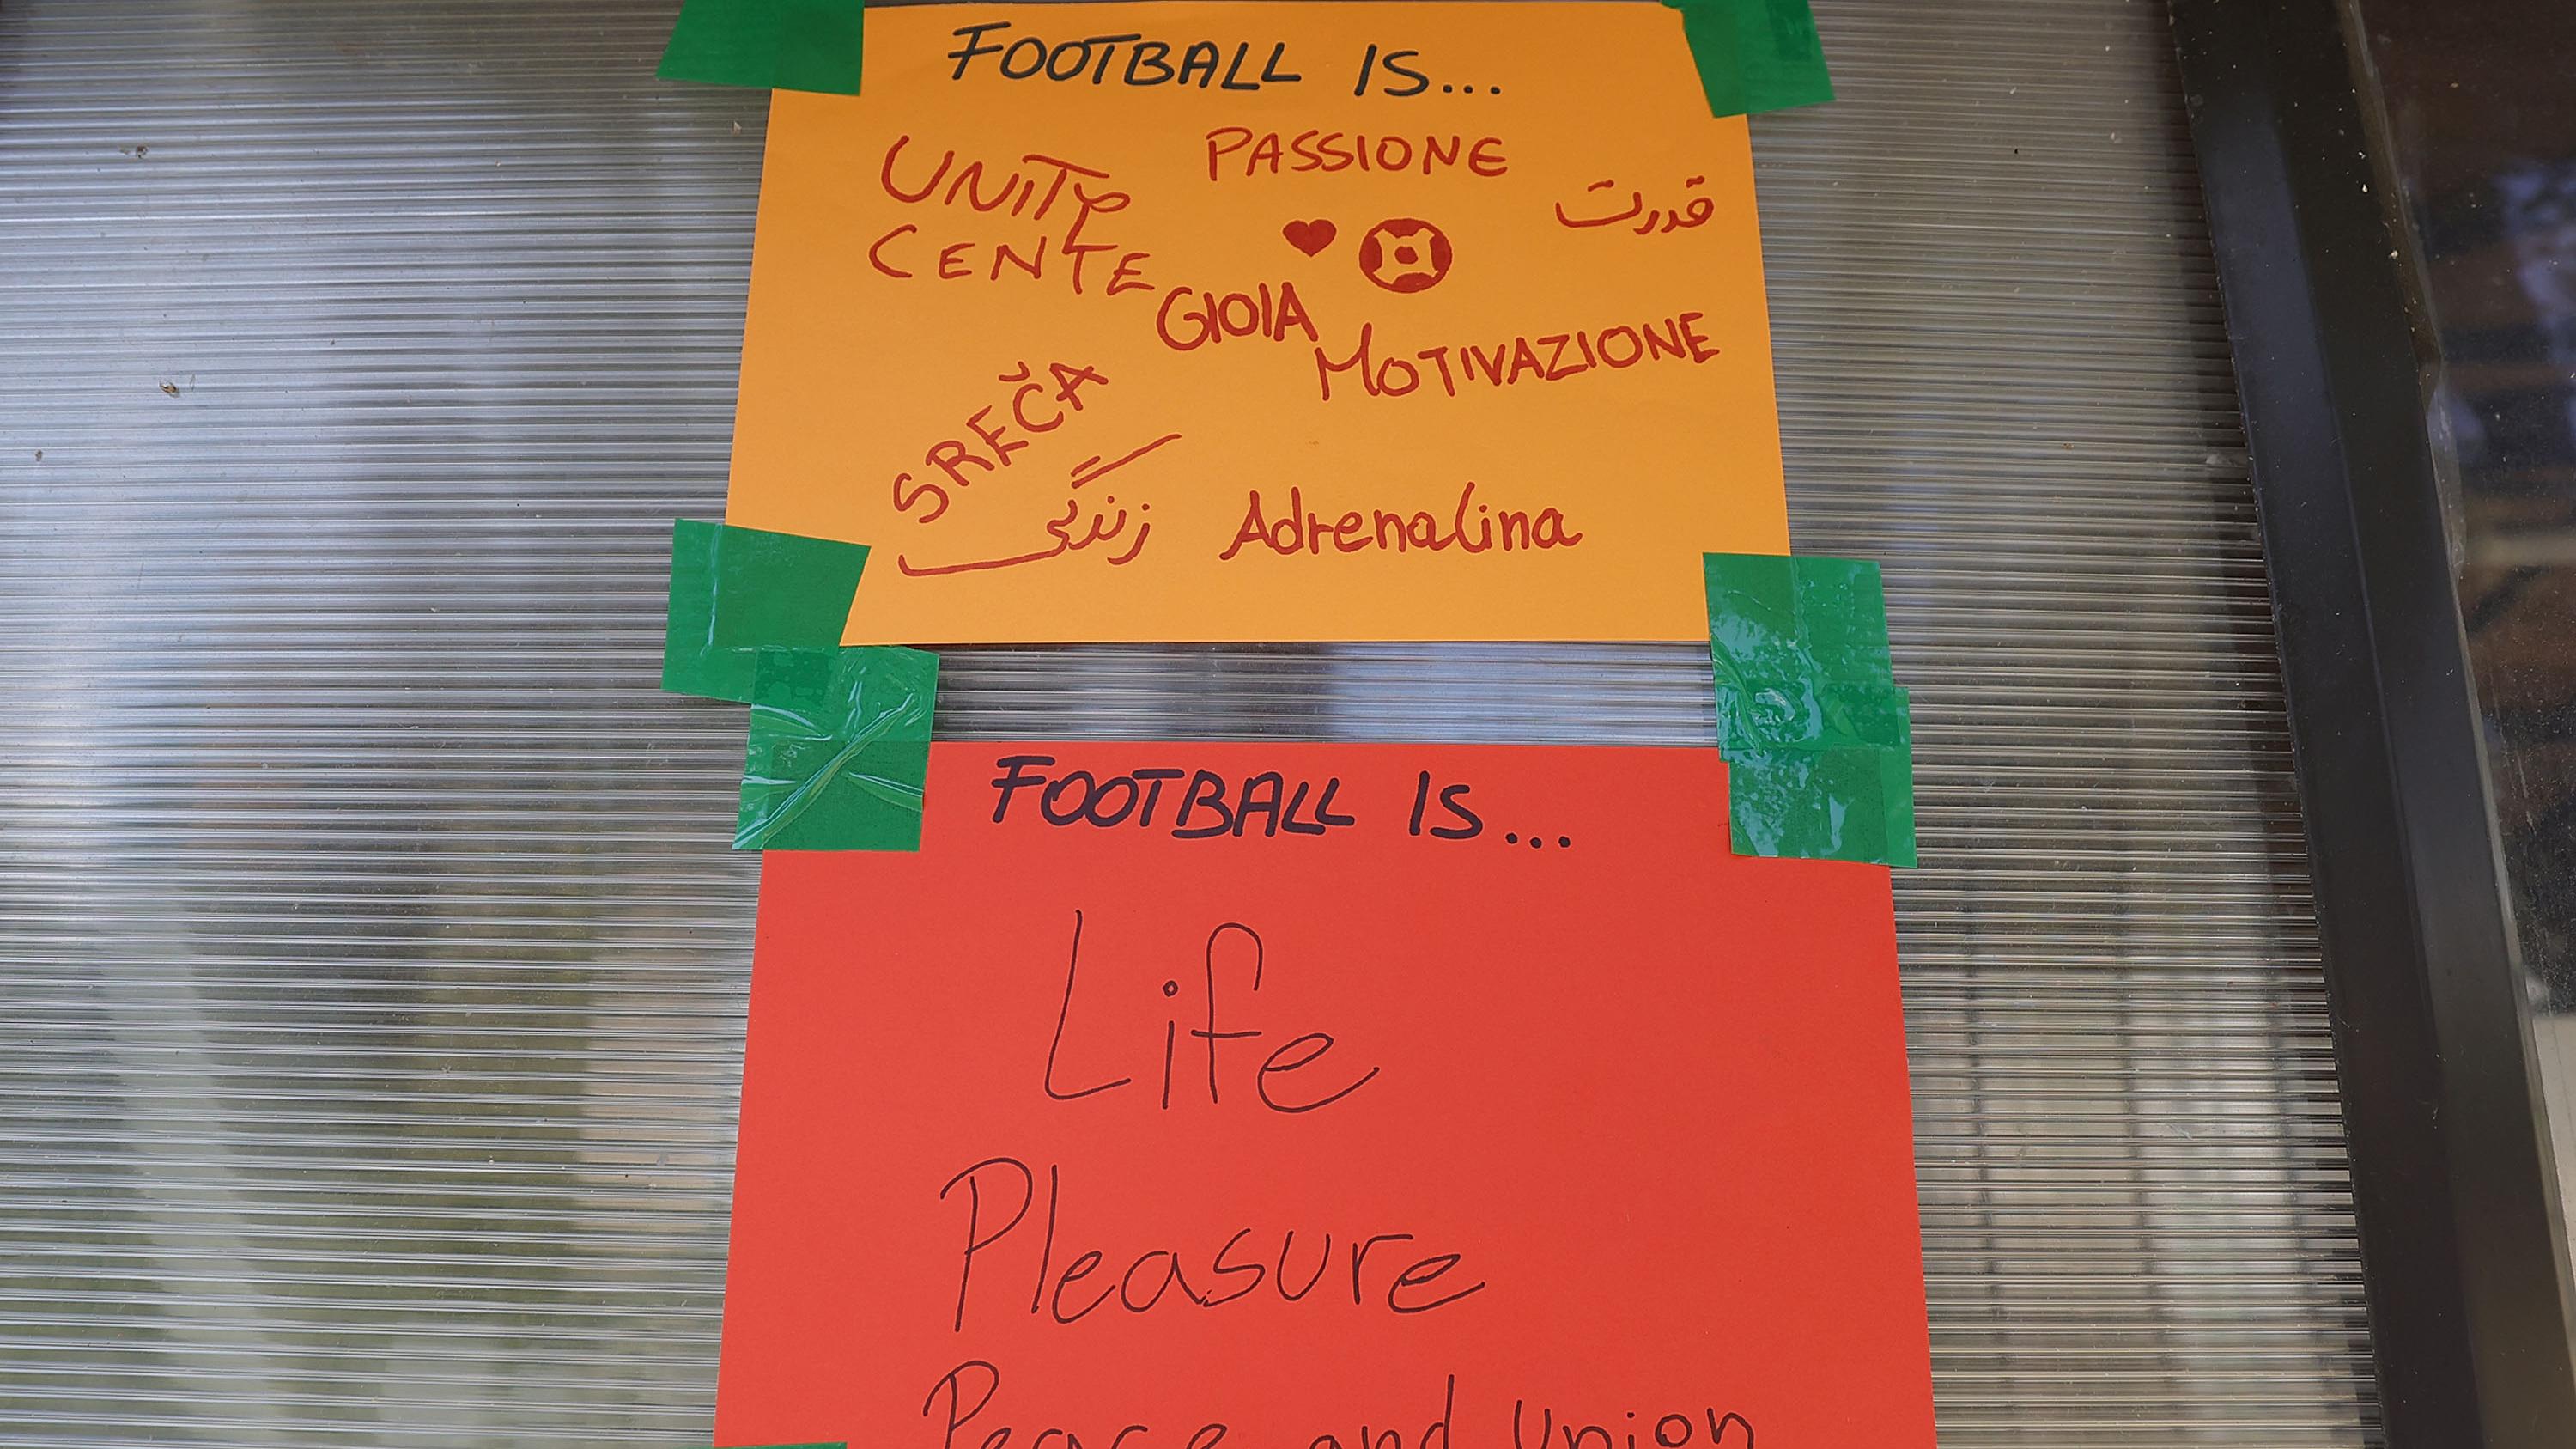 FOOTBALL IS...
PASSIONE
UNITY
قدرت
CENTE
GIOIA
MOTIVAZIONE
SREČA
زندگی
Adrenalina
FOOTBALL IS...
Life
Pleasure
Peace and Union